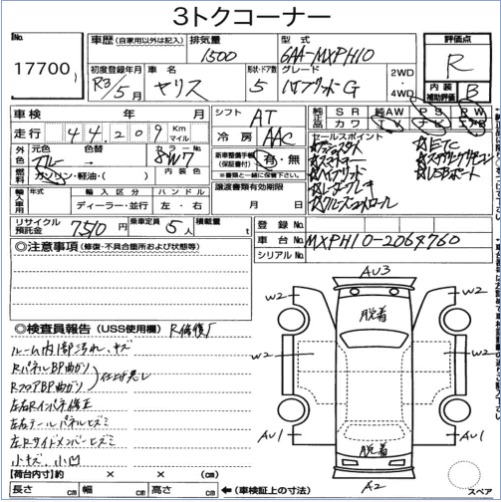 3トクコーナー
No. 17700
車歴 (自家用以外は記入)
排気量 1500
型式 6AA-MXPH10
評価点 R
初度登録年月 R3/5月
車名 ヤリス
形状・ドア数 5
グレード ハイブリッドG
2WD
4WD
内装補助評価 B
車検 年 月
シフト AT
純正 SR 純AW PS PW
革 カワ
走行 44,209 Km マイル
冷房 AAC
セールスポイント
外色 元色 色替 カラーNo. 8W7
ブルー
内装色
新車整備手帳(保証書付) 有・無
※書類と一緒に保管下さい。
☆スマートキー
☆ハイブリッド
☆レーダーブレーキ
☆クルーズコントロール
☆ETC
☆ステアリングリモコン
☆USBポート
燃料 ガソリン・軽油・( )
輸入車用 年式 輸入区分 ハンドル
ディーラー・並行 左・右
譲渡書類有効期限
月 日
リサイクル預託金 7510円
乗車定員 5人
積載量 t
登録No.
車台No. MXPH10-2064760
シリアルNo.
◎注意事項 (修復・不具合箇所および状態等)
◎検査員報告 (USS使用欄) R修復歴
ルーム内部汚れ、キズ
RパネルBP曲がり
RフロアBP曲がり 仕上げ悪し
左右Rインパネ修正
左右テールパネルヒズミ
左Rサイドメンバーヒズミ
小キズ、小凹
AU3
W2 脱着 W2
W2 W2
AU1 脱着 AU1
A2
【荷台内寸】 約 × × (㎝)
長さ cm 幅 cm 高さ cm ←(車検証上の寸法)
スペア